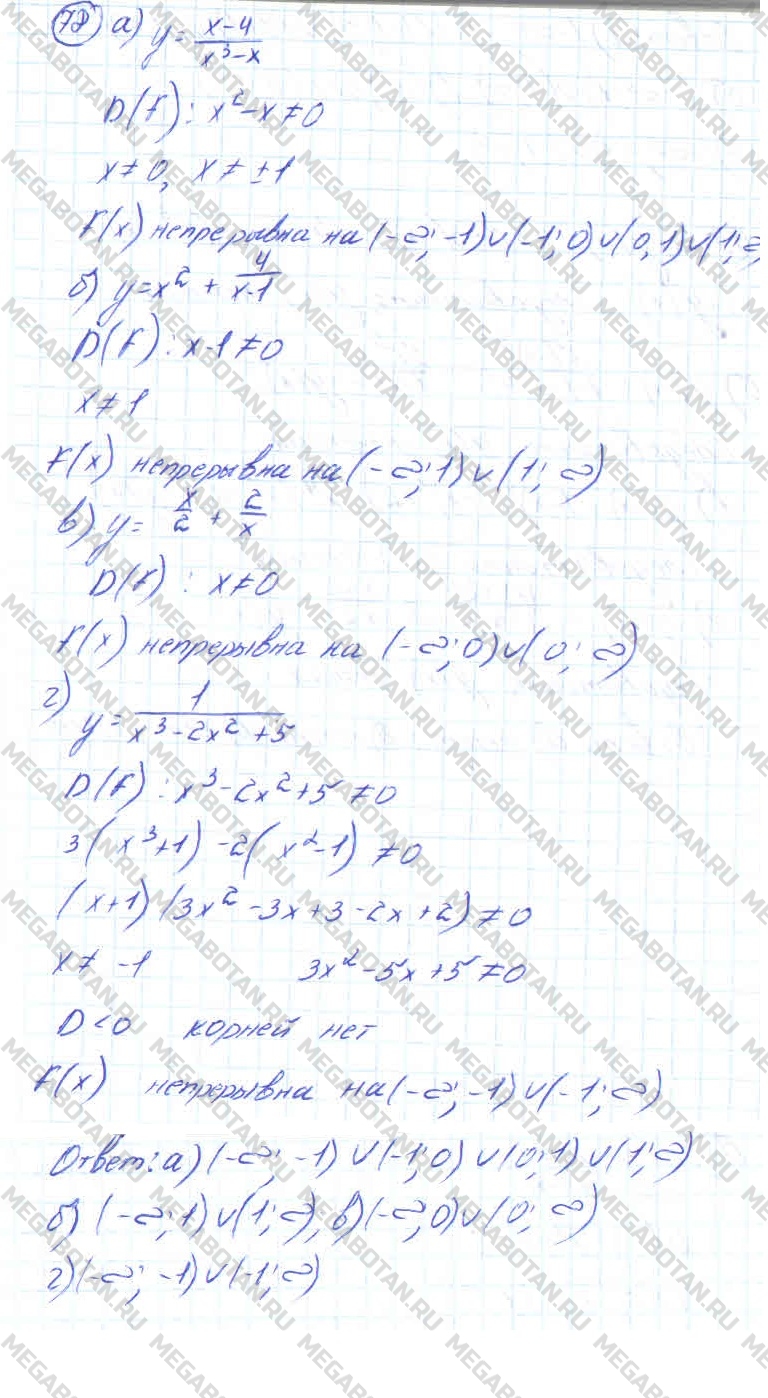 78) а) y = (x-4)/(x³-x)
D(f): x²-x≠0
x≠0, x≠±1
f(x) непрерывна на (-∞; -1)∪(-1; 0)∪(0; 1)∪(1; ∞
б) y=x² + 4/(x-1)
D(f): x-1≠0
x≠1
f(x) непрерывна на (-∞; 1)∪(1; ∞)
в) y= x/2 + 2/x
D(f): x≠0
f(x) непрерывна на (-∞; 0)∪(0; ∞)
г) y = 1/(x³-2x²+5)
D(f): x³-2x²+5≠0
3(x³+1)-2(x²-1)≠0
(x+1)(3x²-3x+3-2x+2)≠0
x≠-1 3x²-5x+5≠0
D<0 корней нет
f(x) непрерывна на (-∞; -1)∪(-1; ∞)
Ответ: а) (-∞; -1)∪(-1; 0)∪(0; 1)∪(1; ∞)
б) (-∞; 1)∪(1; ∞), в) (-∞; 0)∪(0; ∞)
г) (-∞; -1)∪(-1; ∞)
MEGABOTAN.RU